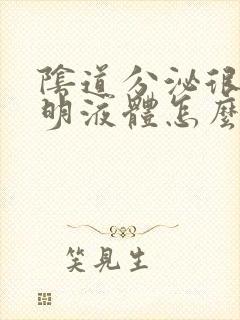 陰道分泌很
明液體怎麼
笑見生